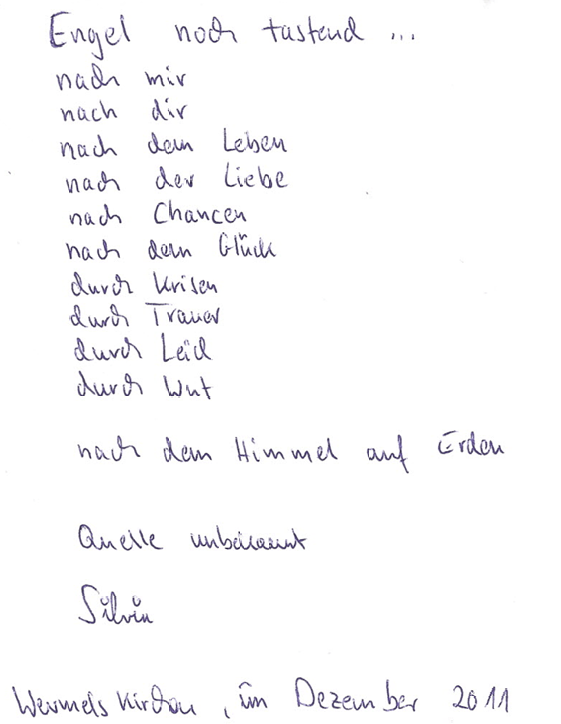 Engel noch tastend ...
nach mir
nach dir
nach dem Leben
nach der Liebe
nach Chancen
nach dem Glück
durch Krisen
durch Trauer
durch Leid
durch Wut
nach dem Himmel auf Erden
Quelle unbekannt
Silvia
Wermelskirchen, im Dezember 2011